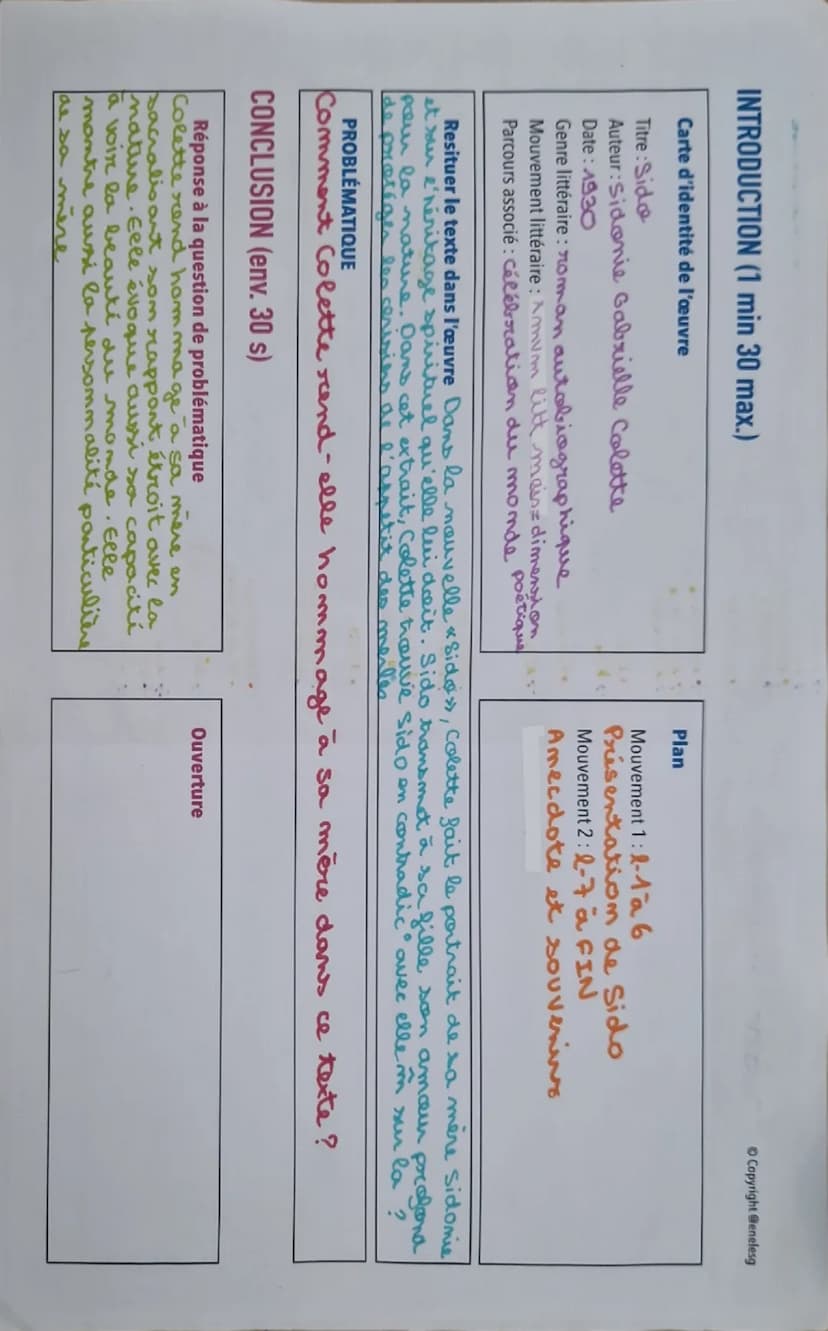 INTRODUCTION (1 min 30 max.)
© Copyright @enelesg
Carte d'identité de l'œuvre
Titre : Sido
Auteur : Sidonie Gabrielle Colette
Date : 1930
Genre littéraire : roman autobiographique
Mouvement littéraire : mvm litt mais dimension poétique
Parcours associé : célébration du monde
Plan
Mouvement 1 : l-1 à 6
Présentation de Sido
Mouvement 2 : l-7 à FIN
Anecdote et souvenirs
Resituer le texte dans l'œuvre Dans la nouvelle « Sido », Colette fait le portrait de sa mère Sidonie
et sur l'héritage spirituel qu'elle lui doit. Sido transmet à sa fille son amour profond
pour la nature. Dans cet extrait, Colette trouve Sido en contradic° avec elle m̂ sur la ?
de protéger les cerisiers de l'appétit des merles
PROBLÉMATIQUE
Comment Colette rend-elle hommage à sa mère dans ce texte ?
CONCLUSION (env. 30 s)
Réponse à la question de problématique
Colette rend hommage à sa mère en
sacralisant son rapport étroit avec la
nature. Elle évoque aussi sa capacité
à voir la beauté du monde. Elle
montre aussi la personnalité particulière
de sa mère
Ouverture